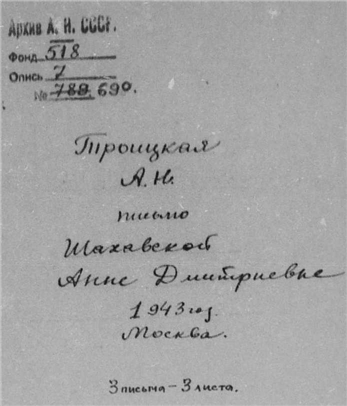 Архив А. Н. СССР.
Фонд 518
Опись 7
№ 788. 690.
Троицкая
А.Н.
письмо
Шаховской
Анне Дмитриевне
1943 год.
Москва.
3 письма - 3 листа.